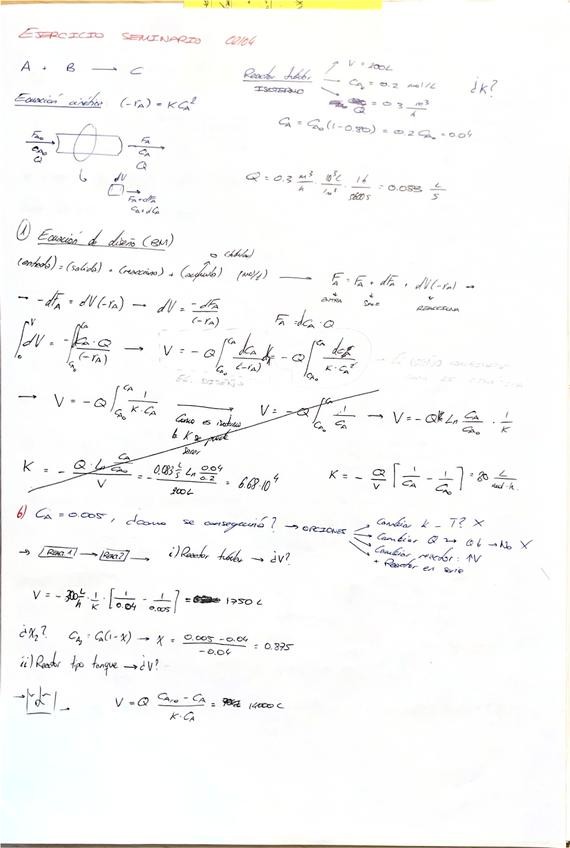 EJERCICIO SEMINARIO 02/04
A + B → C
Reactor tubular
ISOTERMO
V = 200L
C_A0 = 0.2 mol/L
Q = 0.3 m³/h
¿K?
Ecuación cinética (-rA) = K C_A²
C_A = C_A0 (1-0.80) = 0.2 C_A0 = 0.04
F_A0
C_A0
Q
F_A
C_A
Q
dV
F_A + dF_A
C_A + dC_A
Q = 0.3 m³/h · 10³L/1m³ · 1h/3600s = 0.083 L/s
① Ecuación de diseño (BM)
(entrada) = (salida) + (reacciona) + (acumula) (mol/s) → F_A = F_A + dF_A + dV(-rA) →
ENTRA SALE REACCIONA
→ -dF_A = dV(-rA) → dV = -dF_A/(-rA) F_A = dC_A · Q
∫₀^V dV = -∫_{C_A0}^{C_A} dC_A · Q/(-rA) → V = -Q ∫_{C_A0}^{C_A} dC_A/(-rA) = -Q ∫_{C_A0}^{C_A} dC_A/(K · C_A²)
EC. DISEÑO
→ V = -Q ∫_{C_A0}^{C_A} 1/(K · C_A) → V = -Q ∫_{C_A0}^{C_A} 1/C_A → V = -Q Ln C_A/C_A0 · 1/K
Como es isotermo
la K se puede
sacar
K = - Q · Ln C_A/C_A0 / V = - 0.083 L/s Ln 0.04/0.2 / 200L = 6.68·10⁴
K = - Q/V [1/C_A - 1/C_A0] = 30 L/mol·h
b) C_A = 0.005, ¿cómo se conseguiría? → OPCIONES
Cambiar K - T? X
Cambiar Q → Qb → No X
Cambiar reactor: ↑V
+ Reactor en serie
→ REAC 1 → REAC 2 → i) Reactor tubular → ¿V?
V = -300 L/h · 1/K · [1/0.04 - 1/0.005] = 1750 L
¿X₂? C_A2 = C_A (1-X) → X = 0.005 - 0.04 / -0.04 = 0.875
ii) Reactor tipo tanque → ¿V?
V = Q C_A0 - C_A / K · C_A = 14000 L